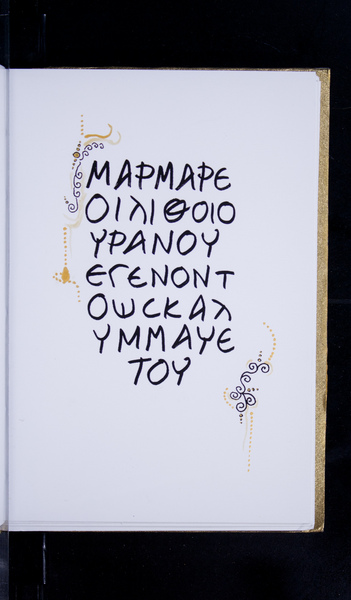 ΜΑΡΜΑΡΕ
ΟΙΛΙΘΟΙΟ
ΥΡΑΝΟΥ
ΕΓΕΝΟΝΤ
ΟΩΣΚΑΛ
ΥΜΜΑΥΕ
ΤΟΥ